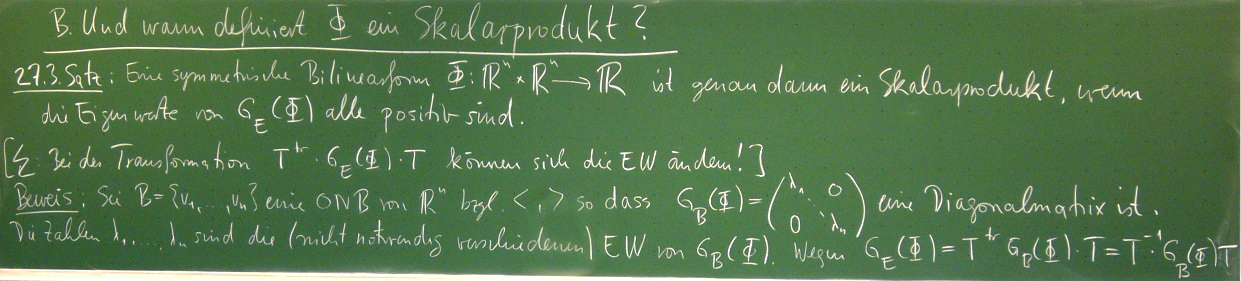 B. Und wann definiert Φ ein Skalarprodukt?
27.3. Satz: Eine symmetrische Bilinearform Φ: ℝⁿ × ℝⁿ → ℝ ist genau dann ein Skalarprodukt, wenn
die Eigenwerte von G_E(Φ) alle positiv sind.
[↯: Bei der Transformation T^tr · G_E(Φ) · T können sich die EW ändern!]
Beweis: Sei B = {v₁, ..., vₙ} eine ONB von ℝⁿ bzgl. < , > so dass G_B(Φ) = (λ₁ 0 ⋱ 0 λₙ) eine Diagonalmatrix ist.
Die Zahlen λ₁, ..., λₙ sind die (nicht notwendig verschiedenen) EW von G_B(Φ). Wegen G_E(Φ) = T^tr G_B(Φ) · T = T⁻¹ · G_B(Φ) T